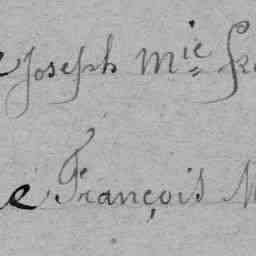 Joseph Mie
François